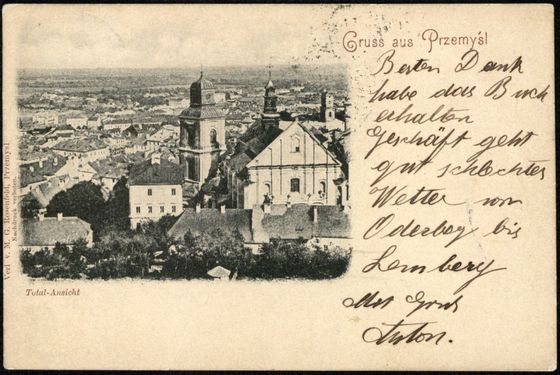 Gruss aus Przemyśl
Besten Dank
habe das Buch
erhalten
Geschäft geht
gut schlechtes
Wetter von
Oderberg bis
Lemberg
Mit Gruß
Anton.
Total-Ansicht
Verl v. M. G. Rosenfeld, Przemysl
Nachdruck verboten.